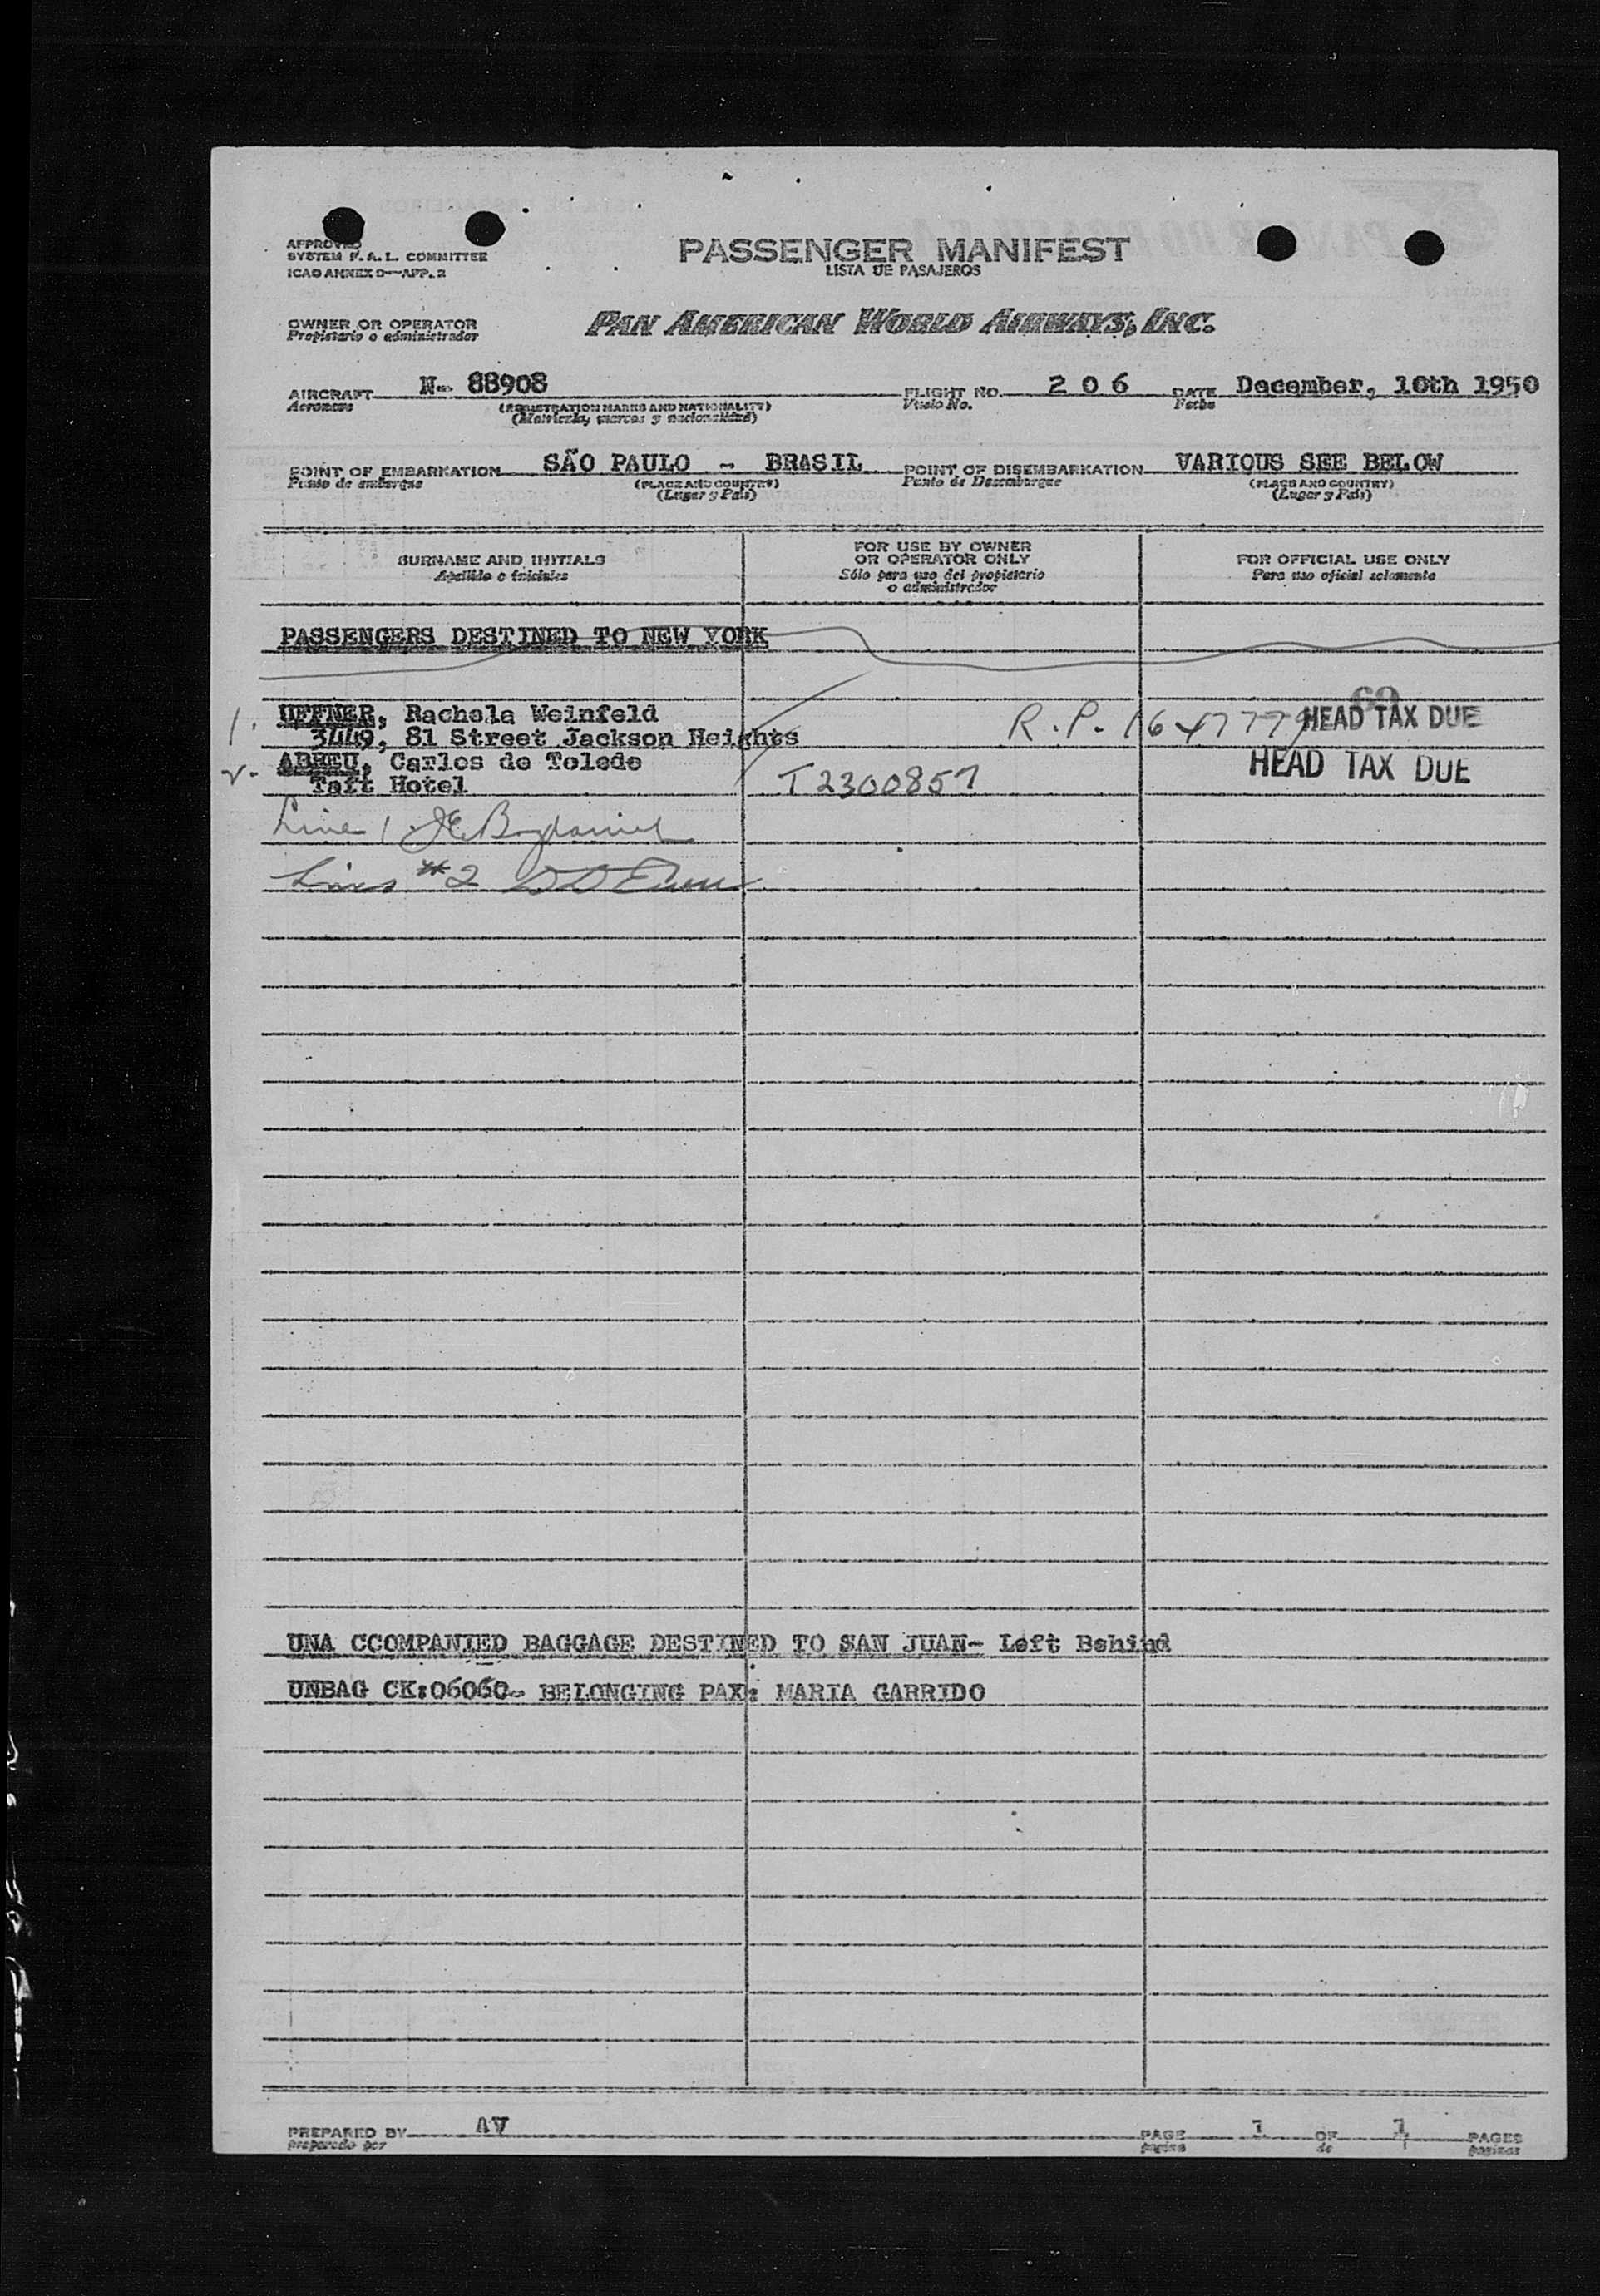 APPROVED
SYSTEM F. A. L. COMMITTEE
ICAO ANNEX 9—APP. 2
PASSENGER MANIFEST
LISTA DE PASAJEROS
OWNER OR OPERATOR
Propietario o administrador
PAN AMERICAN WORLD AIRWAYS, INC.
AIRCRAFT N- 88908 FLIGHT NO. 2 0 6 DATE December, 10th 1950
Aeronave (REGISTRATION MARKS AND NATIONALITY) Vuelo No. Fecha
(Matrícula, marcas y nacionalidad)
POINT OF EMBARKATION SÃO PAULO - BRASIL POINT OF DISEMBARKATION VARIOUS SEE BELOW
Punto de embarque (PLACE AND COUNTRY) Punto de Desembarque (PLACE AND COUNTRY)
(Lugar y País) (Lugar y País)
SURNAME AND INITIALS
Apellido e iniciales
FOR USE BY OWNER
OR OPERATOR ONLY
Sólo para uso del propietario
o administrador
FOR OFFICIAL USE ONLY
Para uso oficial solamente
PASSENGERS DESTINED TO NEW YORK
69
1. UFFNER, Rachela Weinfeld R.P. 1647779 HEAD TAX DUE
3449, 81 Street Jackson Heights
ABREU, Carlos de Toledo HEAD TAX DUE
Taft Hotel T2300857
Line 1
Line #2
UNA CCOMPANIED BAGGAGE DESTINED TO SAN JUAN- Left Behind
UNBAG CK:06060- BELONGING PAX: MARIA GARRIDO
PREPARED BY AV PAGE 1 OF 1 PAGES
preparado por pagina de paginas